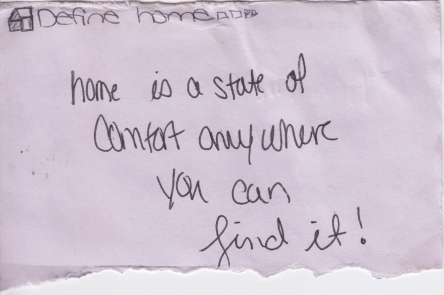 Define home
home is a state of
Comfort anywhere
you can
find it!